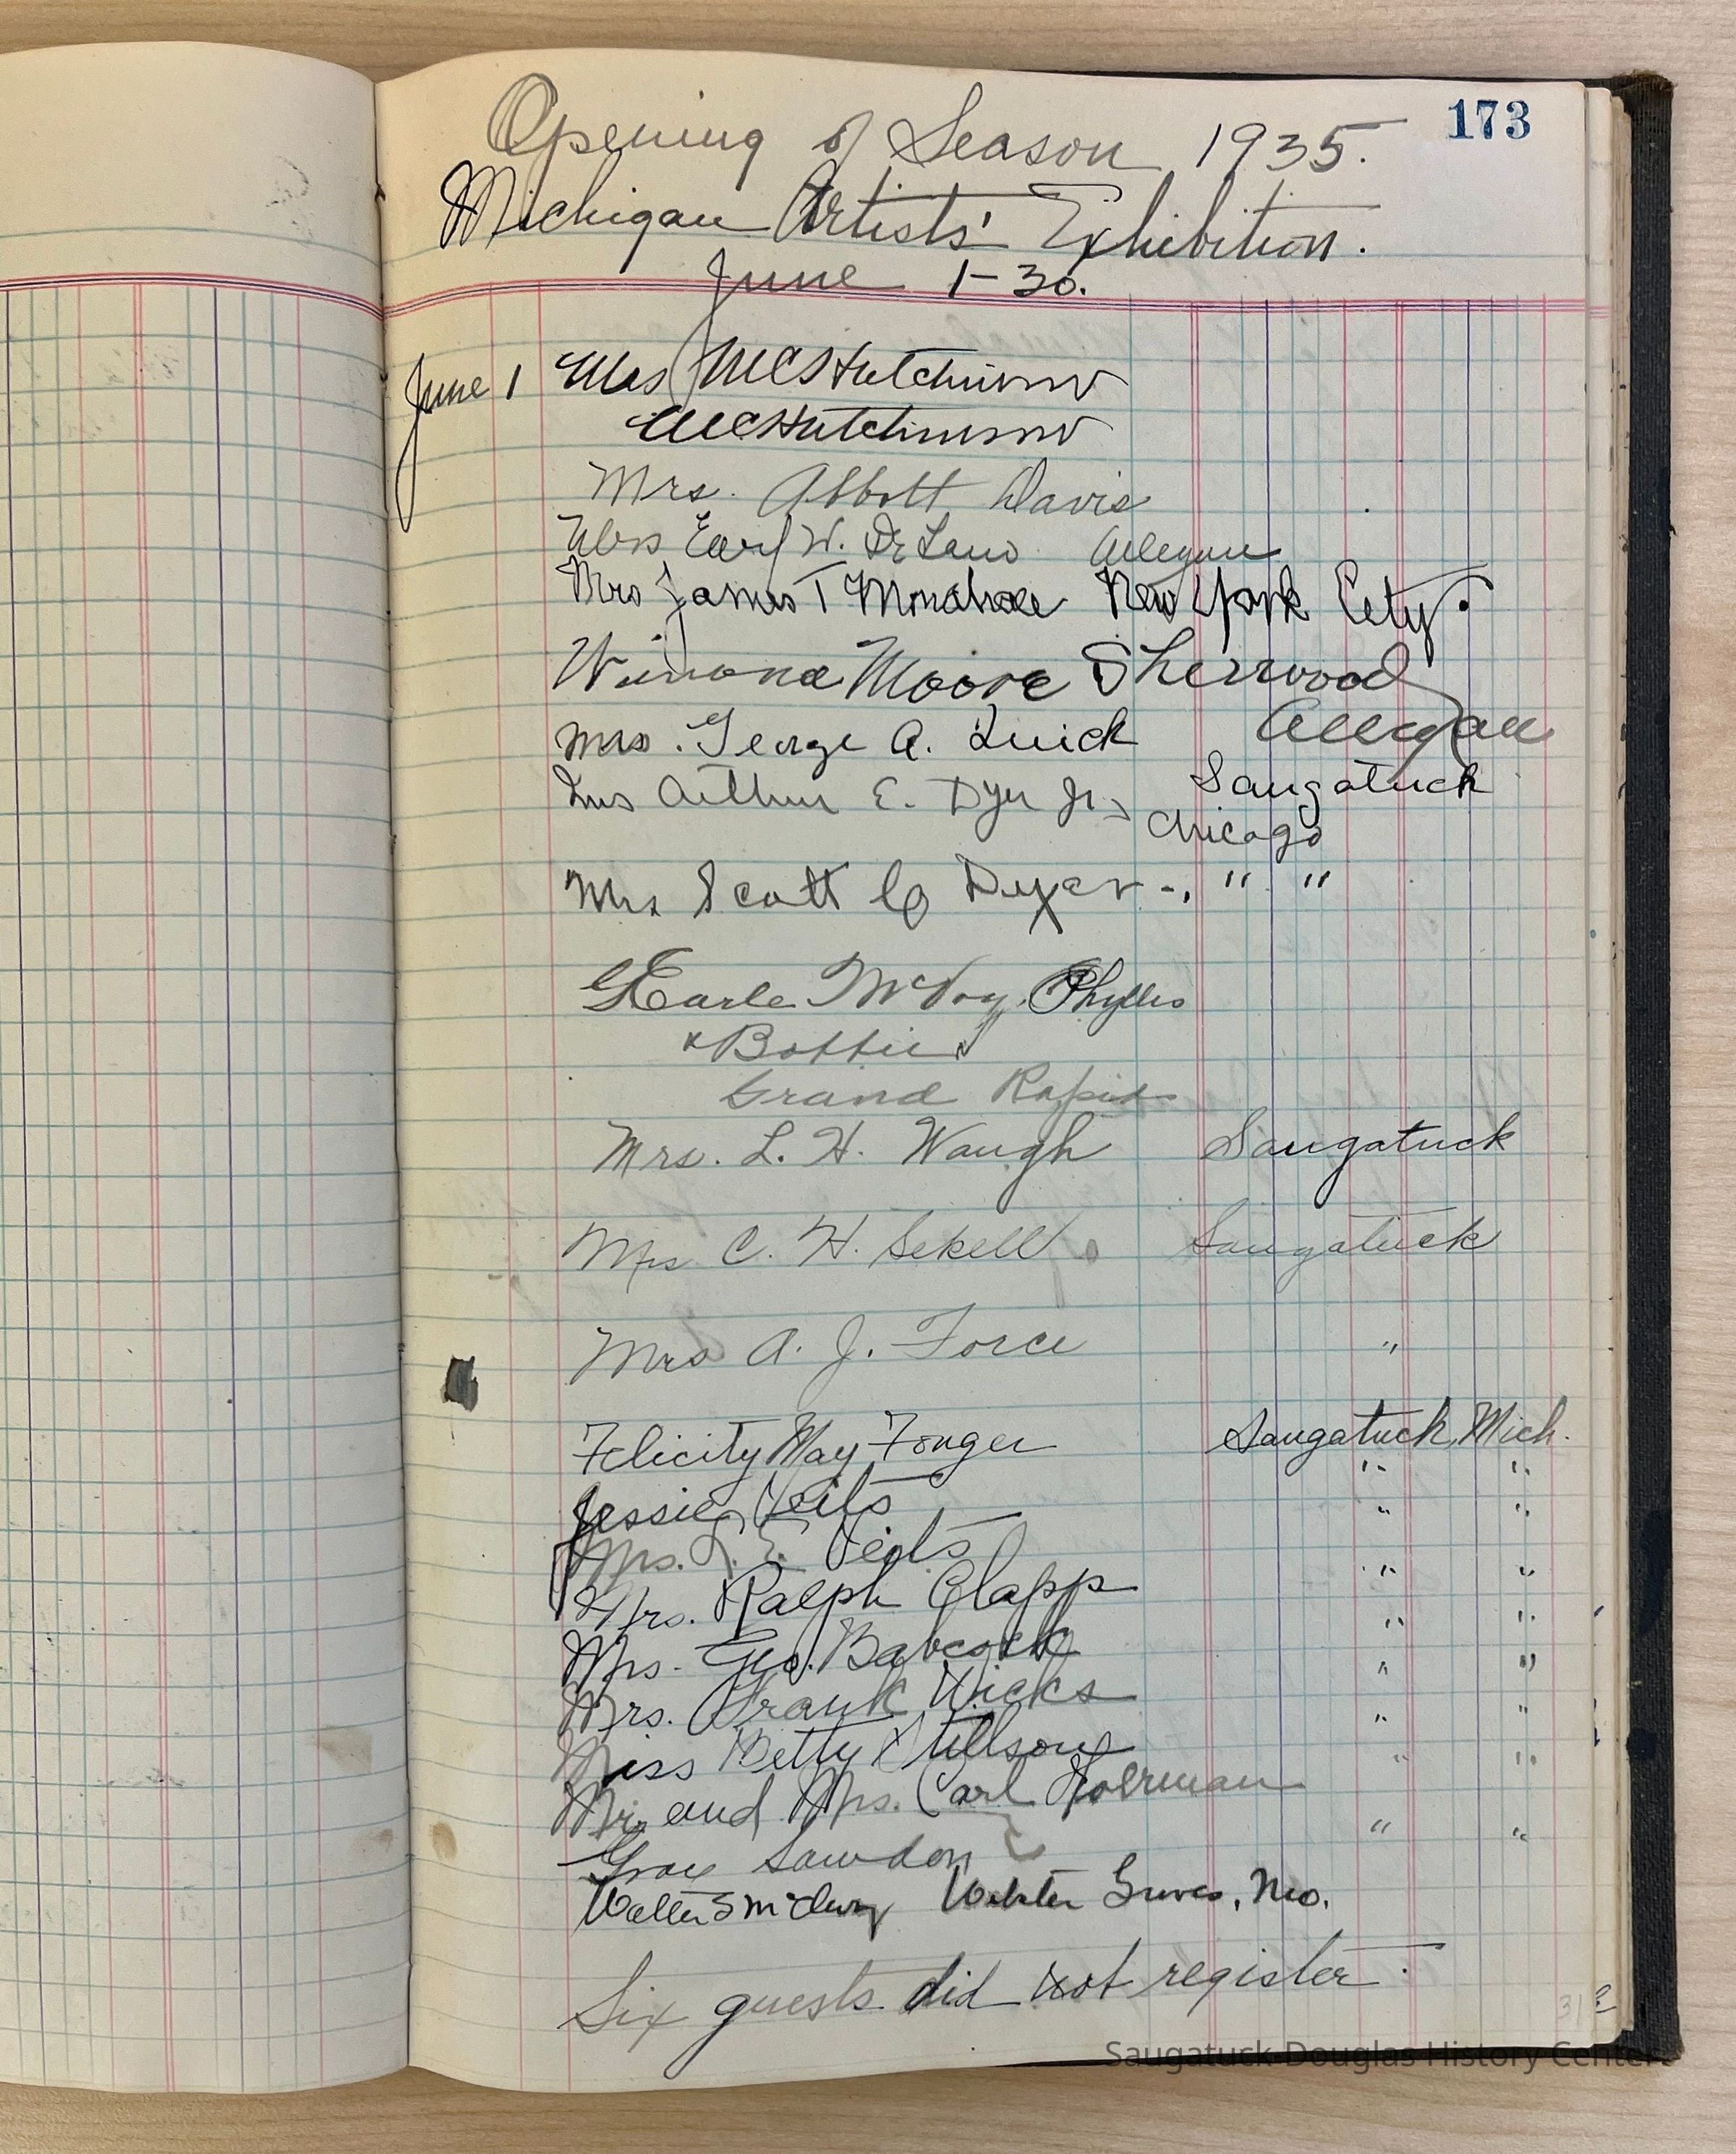 173
Opening of Season 1935.
Michigan Artists' Exhibition.
June 1-30.
June 1 Mrs
Mrs. Abbott Davis
Mrs Earl W. DeLano Allegan
Mrs James T New York City.
Winona Moore Sherwood
Allegan
Mrs. George A. Quick
Saugatuck
Mrs Arthur E. Dyer Jr.,
Chicago
Mrs Scott C Dyer -, " "
Earle McVoy, Phyllis
Grand Rapids
Mrs. L. H. Waugh Saugatuck
Mrs C. H. Sekell Saugatuck
Mrs A. J. Force "
Felicity May Fonger Saugatuck, Mich.
Jessie Veits " "
Mrs. L. E. Veits " "
Mrs. Ralph Clapp " "
Mrs. Geo. Babcock " "
Mrs. Frank Wicks " "
Miss Betty Stillson " "
Mr. and Mrs. Carl Hoerman " "
Sawdon " "
Walter Webster Groves, Mo.
Six guests did not register.
Saugatuck-Douglas History Center